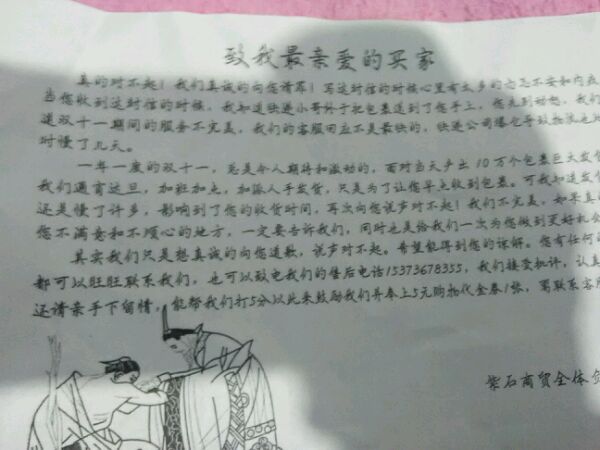 致我最亲爱的买家
真的对不起！我们真诚的向您请罪！写这封信的时候心里有太多的忐忑不安和内疚
当您收到这封信的时候，我知道快递小哥终于把包裹送到了您手上，您先别动怒，我们
道双十一期间的服务不完美，我们的客服回应不是最快的，快递公司爆仓导致物流也比
时慢了几天。
一年一度的双十一，总是令人期待和激动的，面对当天产出10万个包裹巨大发货
我们通宵达旦，加班加点，加派人手发货，只是为了让您早点收到包裹。可我知道发货
还是慢了许多，影响到了您的收货时间，再次向您说声对不起！我们不完美，如果真的
您不满意和不顺心的地方，一定要告诉我们，同时也是给我们一次为您做到更好机会
其实我们只是想真诚的向您道歉，说声对不起。希望能得到您的谅解。您有任何的
都可以旺旺联系我们，也可以致电我们的售后电话15373678355，我们接受批评，认真
还请亲手下留情，能帮我们打5分以此来鼓励我们并奉上5元购物代金券1张，需联系客服
紫石商贸全体